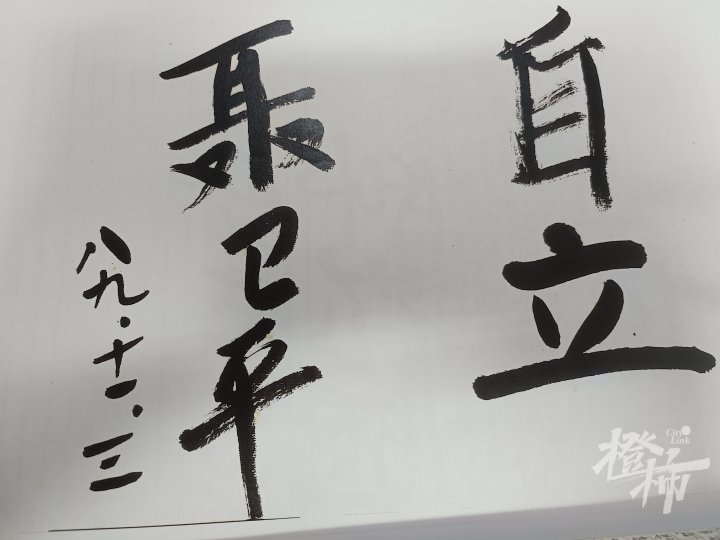 自立
聂卫平
八九·十一·三
橙柿
City Link